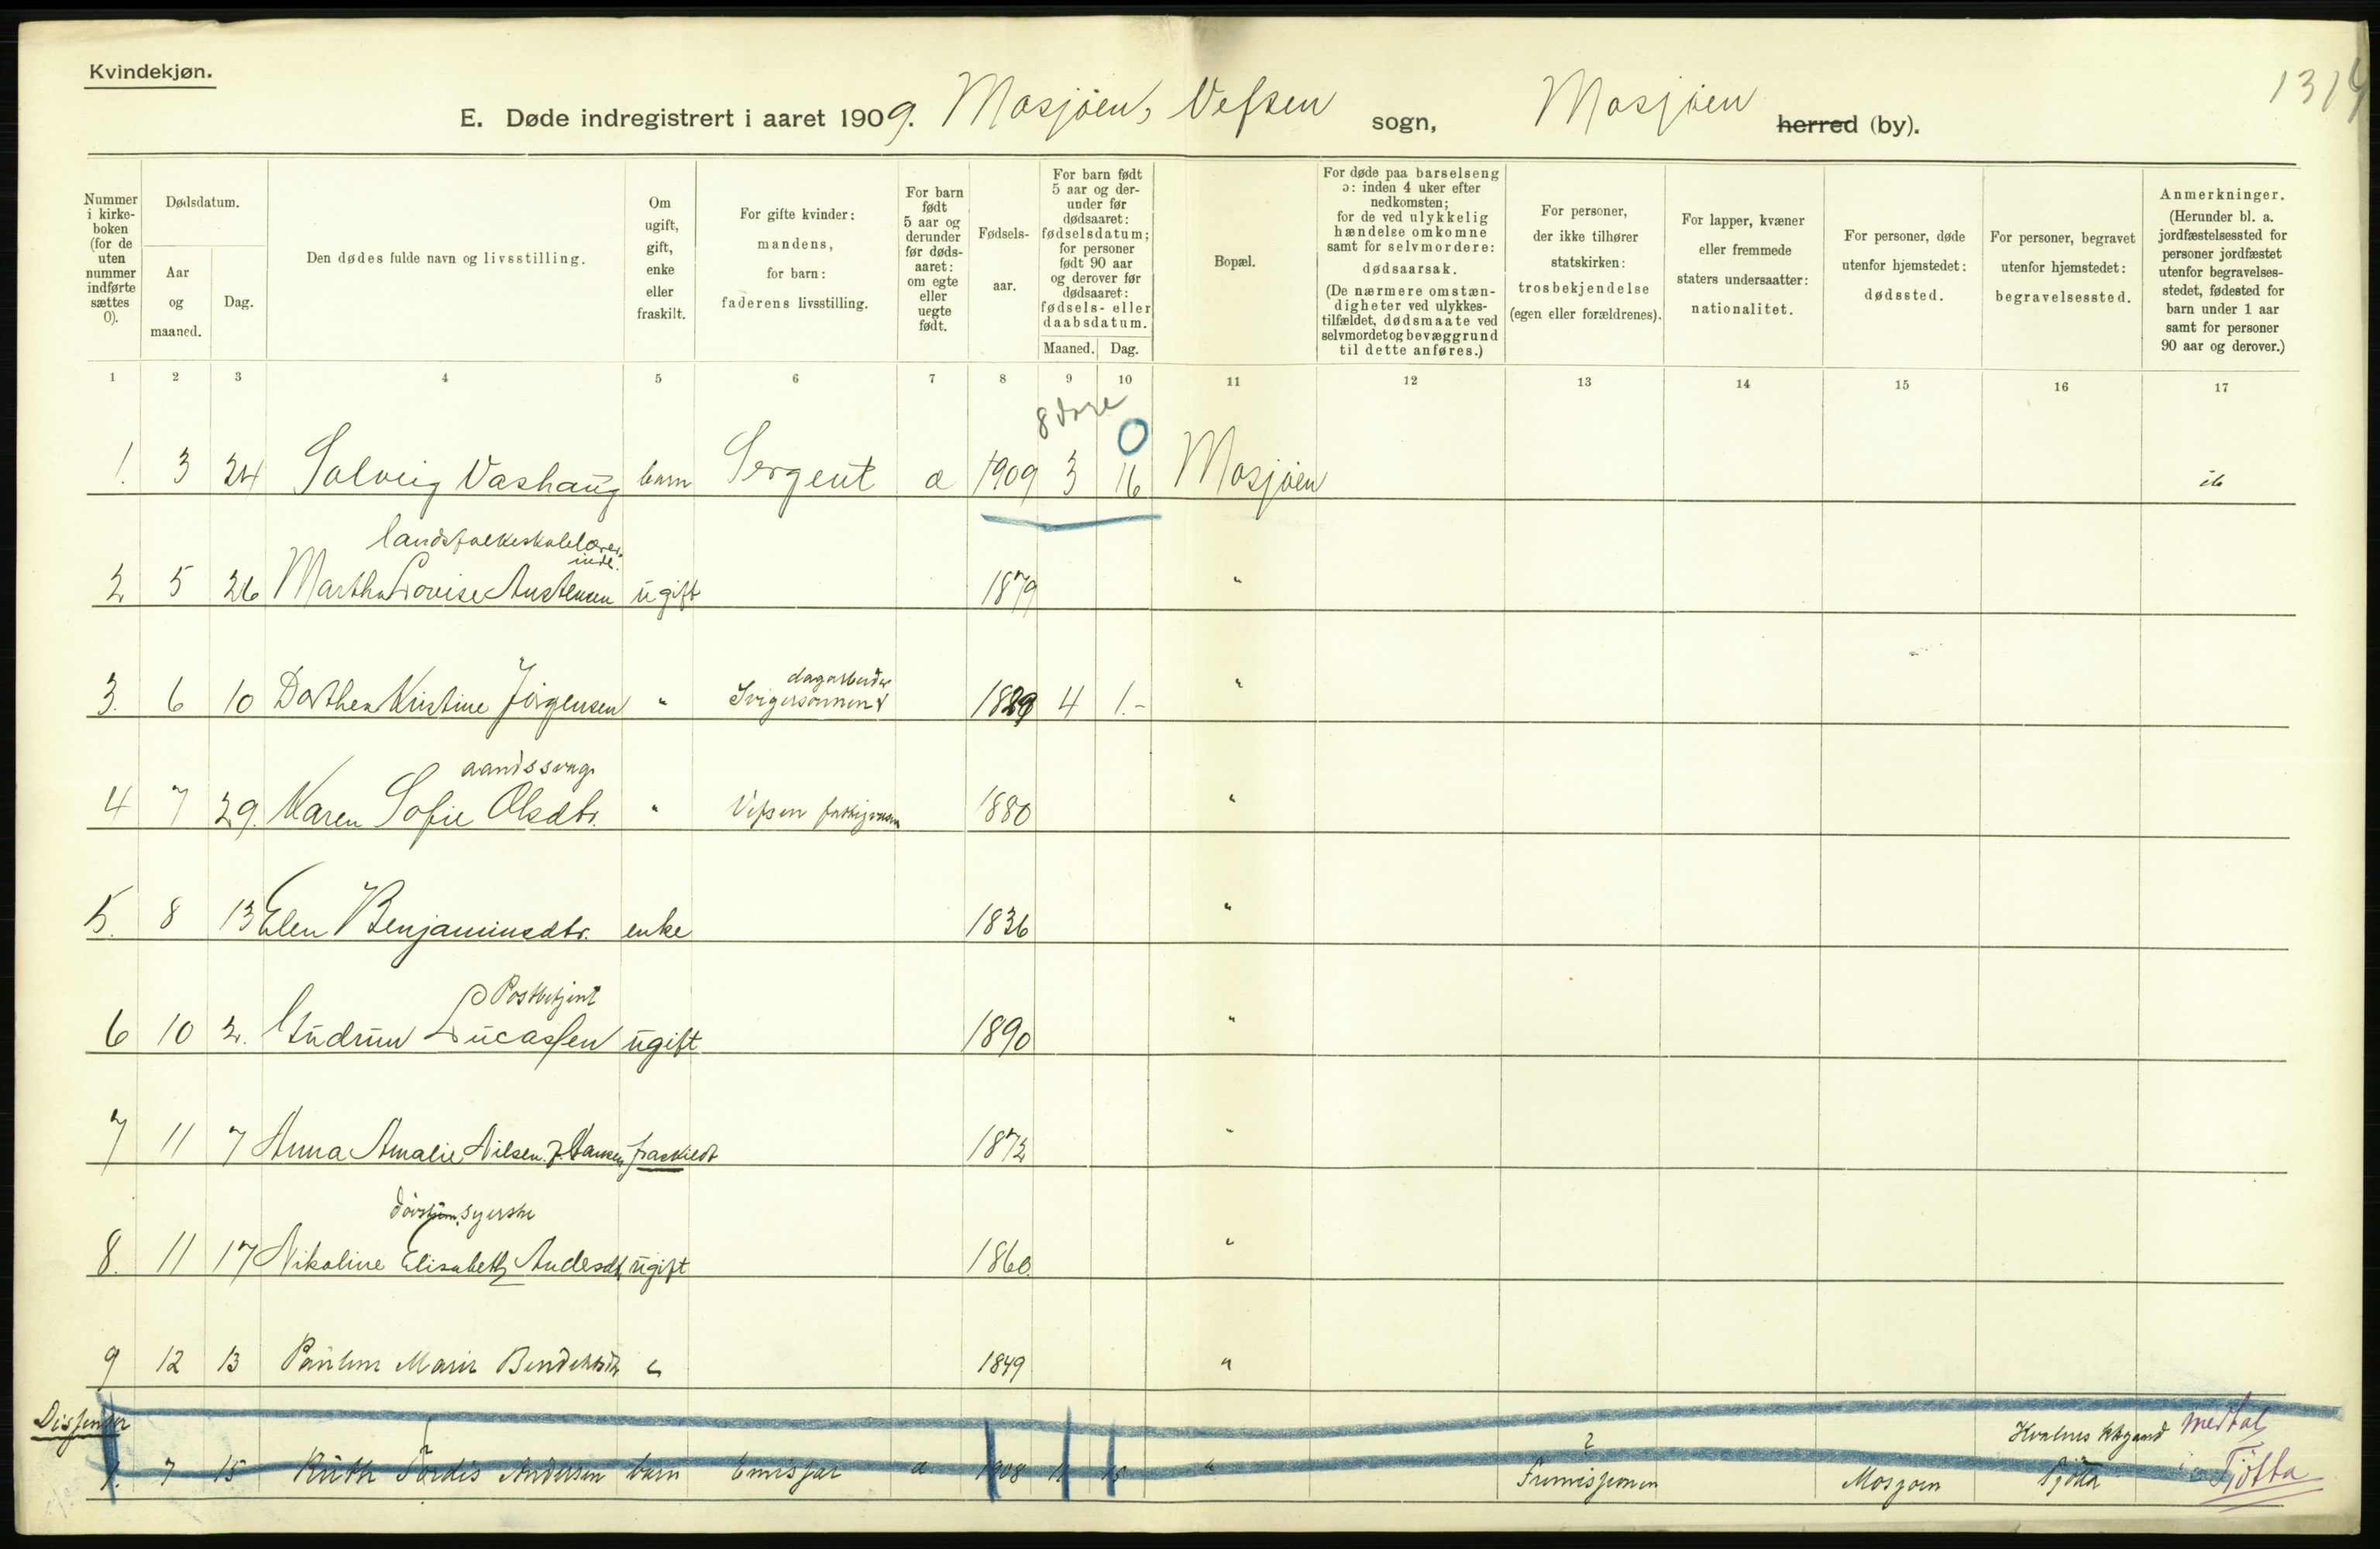 Kvindekjøn.
1314
E. Døde indregistrert i aaret 1909. Mosjöen, Vefsen sogn, Mosjöen herred (by).
Nummer i kirkeboken (for de uten nummer indførte sættes 0).
Dødsdatum.
Aar og maaned.
Dag.
Den dødes fulde navn og livsstilling.
Om ugift, gift, enke eller fraskilt.
For gifte kvinder: mandens, for barn: faderens livsstilling.
For barn født 5 aar og derunder før dødsaaret: om egte eller uegte født.
Fødselsaar.
For barn født 5 aar og derunder før dødsaaret: fødselsdatum; for personer født 90 aar og derover før dødsaaret: fødsels- eller daabsdatum.
Maaned. Dag.
Bopæl.
For døde paa barselseng ɔ: inden 4 uker efter nedkomsten; for de ved ulykkelig hændelse omkomne samt for selvmordere: dødsaarsak. (De nærmere omstændigheter ved ulykkestilfældet, dødsmaate ved selvmordet og bevæggrund til dette anføres.)
For personer, der ikke tilhører statskirken: trosbekjendelse (egen eller forældrenes).
For lapper, kvæner eller fremmede staters undersaatter: nationalitet.
For personer, døde utenfor hjemstedet: dødssted.
For personer, begravet utenfor hjemstedet: begravelsessted.
Anmerkninger. (Herunder bl. a. jordfæstelsessted for personer jordfæstet utenfor begravelsesstedet, fødested for barn under 1 aar samt for personer 90 aar og derover.)
1 2 3 4 5 6 7 8 9 10 11 12 13 14 15 16 17
8 dage
0
1. 3 24 Solveig Vashaug barn Sergent æ 1909 3 16 Mosjöen ib
landsfolkeskolelærerinde.
2 5 26 Martha Lovise Austenen ugift 1879 "
dagarbeider
3. 6 10 Dorthea Kristine Jörgensen " Svigersönnen 1829 4 1.- "
aandssvag
4 7 29. Karen Sofie Olsdtr. " Vefsen fattigvæsen 1880 "
5. 8 13 Elen Benjaminsdtr. enke 1836 "
Postbetjent
6 10 2. Gudrun Lucassen ugift 1890 "
7 11 7 Anna Amalie Nilsen f. Hansen fraskildt 1872 "
dövstum, syerske
8. 11 17 Nikoline Elisabeth Andersdt. ugift 1860. "
9 12 13 Pauline Marie Bendiktsdtr " 1849 "
Dissenter
1. 7 15 Ruth Tordis Andersen barn Emissær æ 1908 11 15 " ? Frimissjonen Mosjøen Tjötta
medtal
i Tjötta